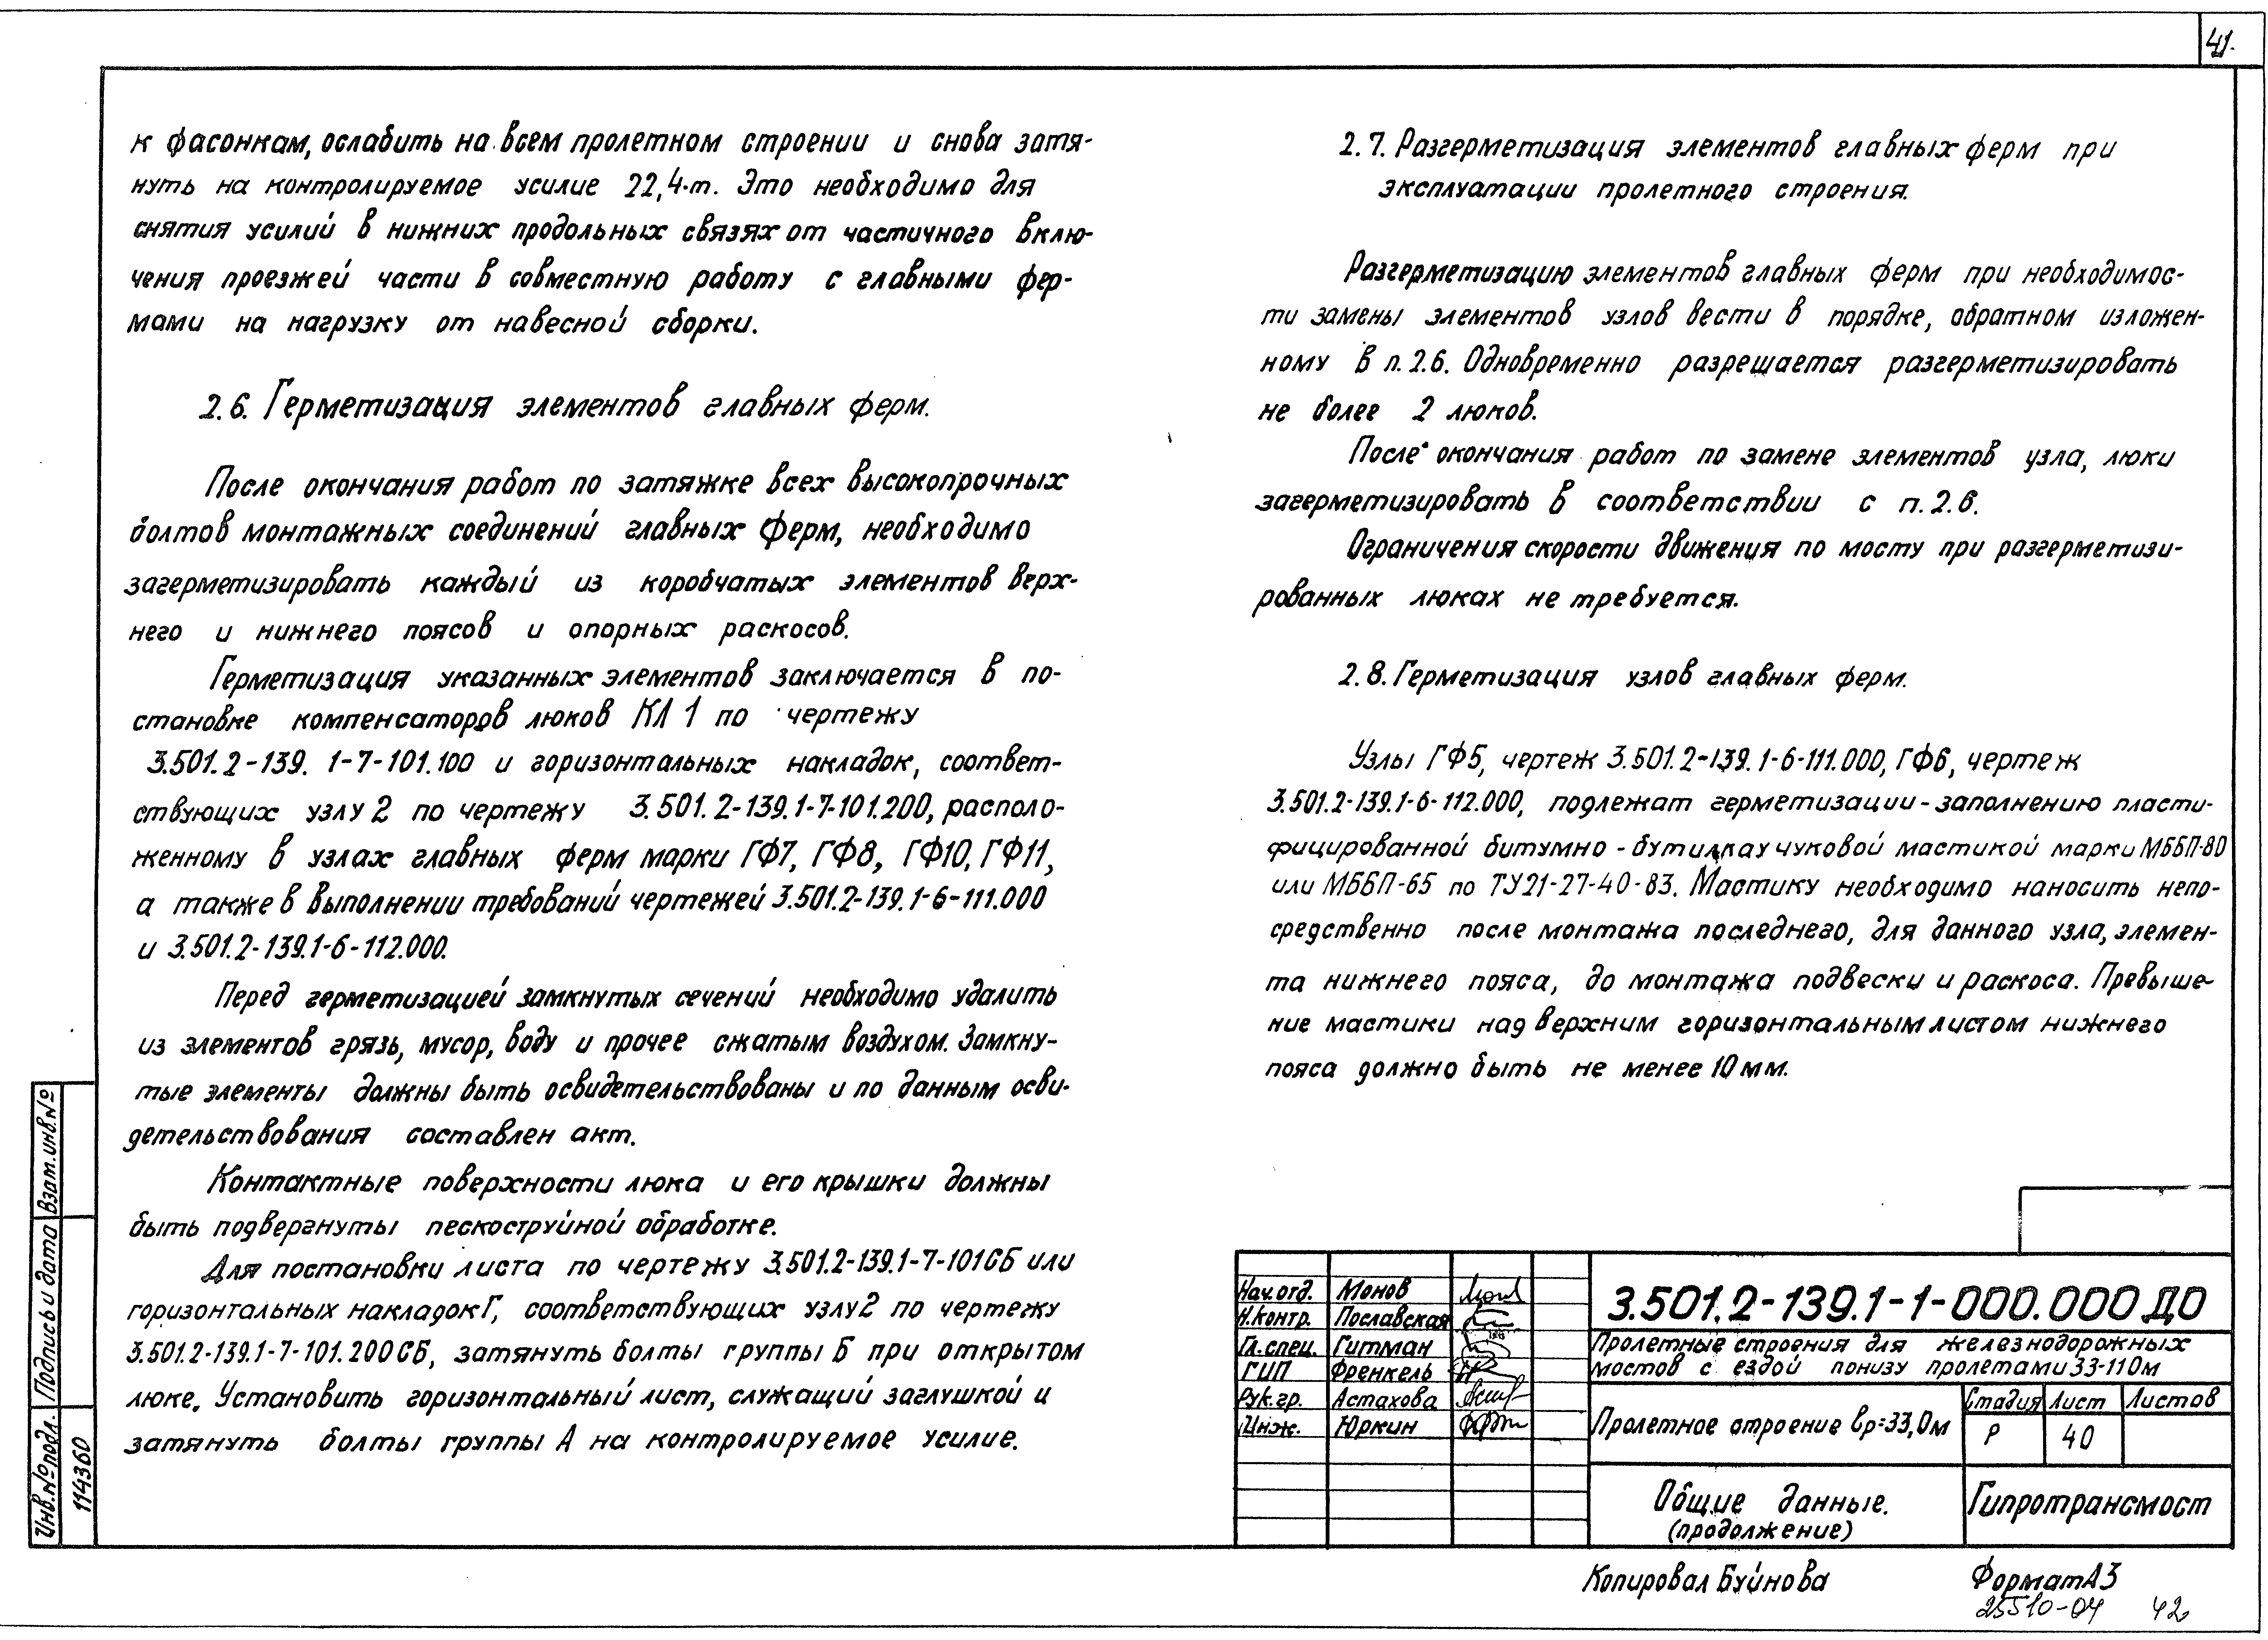 41.
к фасонкам, ослабить на всем пролетном строении и снова затя-
нуть на контролируемое усилие 22,4 т. Это необходимо для
снятия усилий в нижних продольных связях от частичного вклю-
чения проезжей части в совместную работу с главными фер-
мами на нагрузку от навесной сборки.
2.6. Герметизация элементов главных ферм.
После окончания работ по затяжке всех высокопрочных
болтов монтажных соединений главных ферм, необходимо
загерметизировать каждый из коробчатых элементов верх-
него и нижнего поясов и опорных раскосов.
Герметизация указанных элементов заключается в по-
становке компенсаторов люков КЛ 1 по чертежу
3.501.2-139.1-7-101.100 и горизонтальных накладок, соответ-
ствующих узлу 2 по чертежу 3.501.2-139.1-7-101.200, располо-
женному в узлах главных ферм марки ГФ7, ГФ8, ГФ10, ГФ11,
а также в выполнении требований чертежей 3.501.2-139.1-6-111.000
и 3.501.2-139.1-6-112.000.
Перед герметизацией замкнутых сечений необходимо удалить
из элементов грязь, мусор, воду и прочее сжатым воздухом. Замкну-
тые элементы должны быть освидетельствованы и по данным осви-
детельствования составлен акт.
Контактные поверхности люка и его крышки должны
быть подвергнуты пескоструйной обработке.
Для постановки листа по чертежу 3.501.2-139.1-7-101СБ или
горизонтальных накладок Г, соответствующих узлу 2 по чертежу
3.501.2-139.1-7-101.200СБ, затянуть болты группы Б при открытом
люке. Установить горизонтальный лист, служащий заглушкой и
затянуть болты группы А на контролируемое усилие.
2.7. Разгерметизация элементов главных ферм при
эксплуатации пролетного строения.
Разгерметизацию элементов главных ферм при необходимос-
ти замены элементов узлов вести в порядке, обратном изложен-
ному в п. 2.6. Одновременно разрешается разгерметизировать
не более 2 люков.
После окончания работ по замене элементов узла, люки
загерметизировать в соответствии с п. 2.6.
Ограничения скорости движения по мосту при разгерметизи-
рованных люках не требуется.
2.8. Герметизация узлов главных ферм.
Узлы ГФ5, чертеж 3.501.2-139.1-6-111.000, ГФ6, чертеж
3.501.2-139.1-6-112.000, подлежат герметизации - заполнению пласти-
фицированной битумно-бутилкаучуковой мастикой марки МББП-80
или МББП-65 по ТУ21-27-40-83. Мастику необходимо наносить непо-
средственно после монтажа последнего, для данного узла, элемен-
та нижнего пояса, до монтажа подвески и раскоса. Превыше-
ние мастики над верхним горизонтальным листом нижнего
пояса должно быть не менее 10 мм.
Инв.№ подл. Подпись и дата Взам.инв.№
114360
Нач.отд. Монов
Н.контр. Пославская
Гл.спец. Гитман
ГИП Френкель
Рук.гр. Астахова
Инж. Юркин
3.501.2-139.1-1-000.000 ДО
Пролетные строения для железнодорожных
мостов с ездой понизу пролетами 33-110м
Пролетное строение Lр=33,0м
Стадия Лист Листов
Р 40
Общие данные.
(продолжение)
Гипротрансмост
Копировал Буйнова
Формат А3
25510-04 42